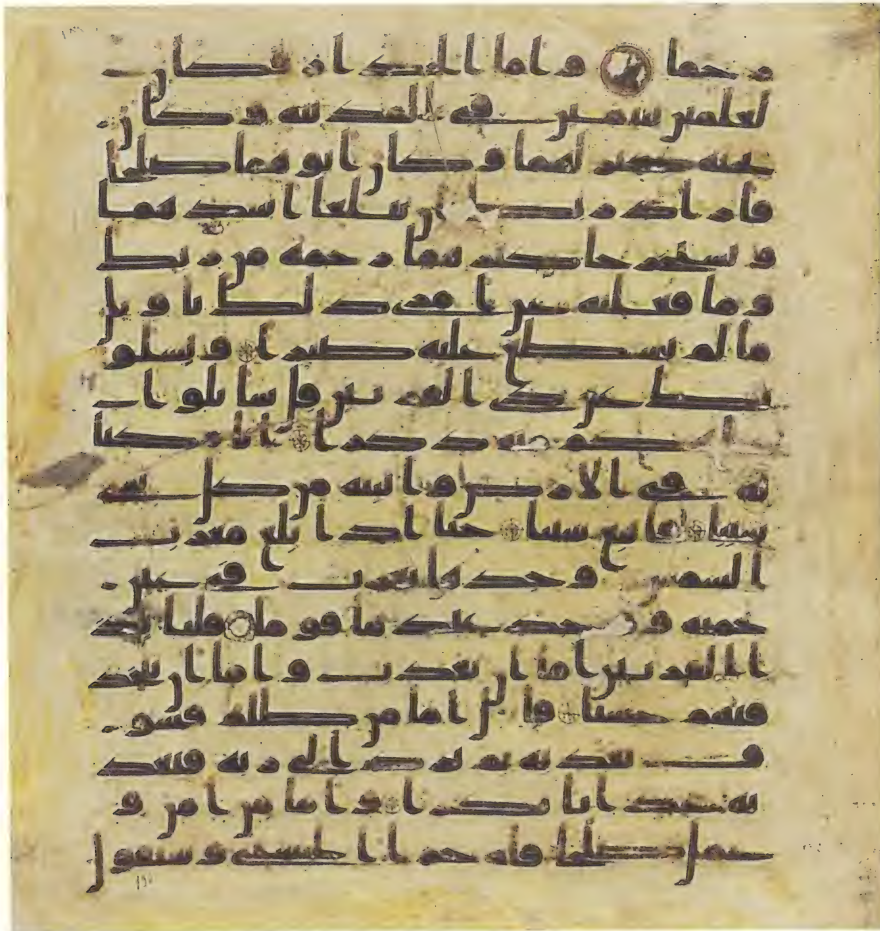 رحما واما الجدار فكان
لغلمين يتيمين في المدينه وكان
تحته كنز لهما وكان ابوهما صلحا
فاراد ربك ان يبلغا اشدهما
ويستخرجا كنزهما رحمه من ربك
وما فعلته عن امري ذلك تاويل
ما لم تسطع عليه صبرا ويسلو
نك عن ذي القرنين قل ساتلوا
عليكم منه ذكرا انا مكنا
له في الارض واتينه من كل شي
سببا فاتبع سببا حتا اذا بلغ مغرب
الشمس وجدها تغرب في عين
حميه ووجد عندها قوما قلنا يذ
ا القرنين اما ان تعذب واما ان تتخذ
فيهم حسنا قال اما من ظلم فسو
ف نعذبه ثم يرد الى ربه فيعذ
به عذابا نكرا واما من امن و
عمل صلحا فله جزا الحسنى وسنقول